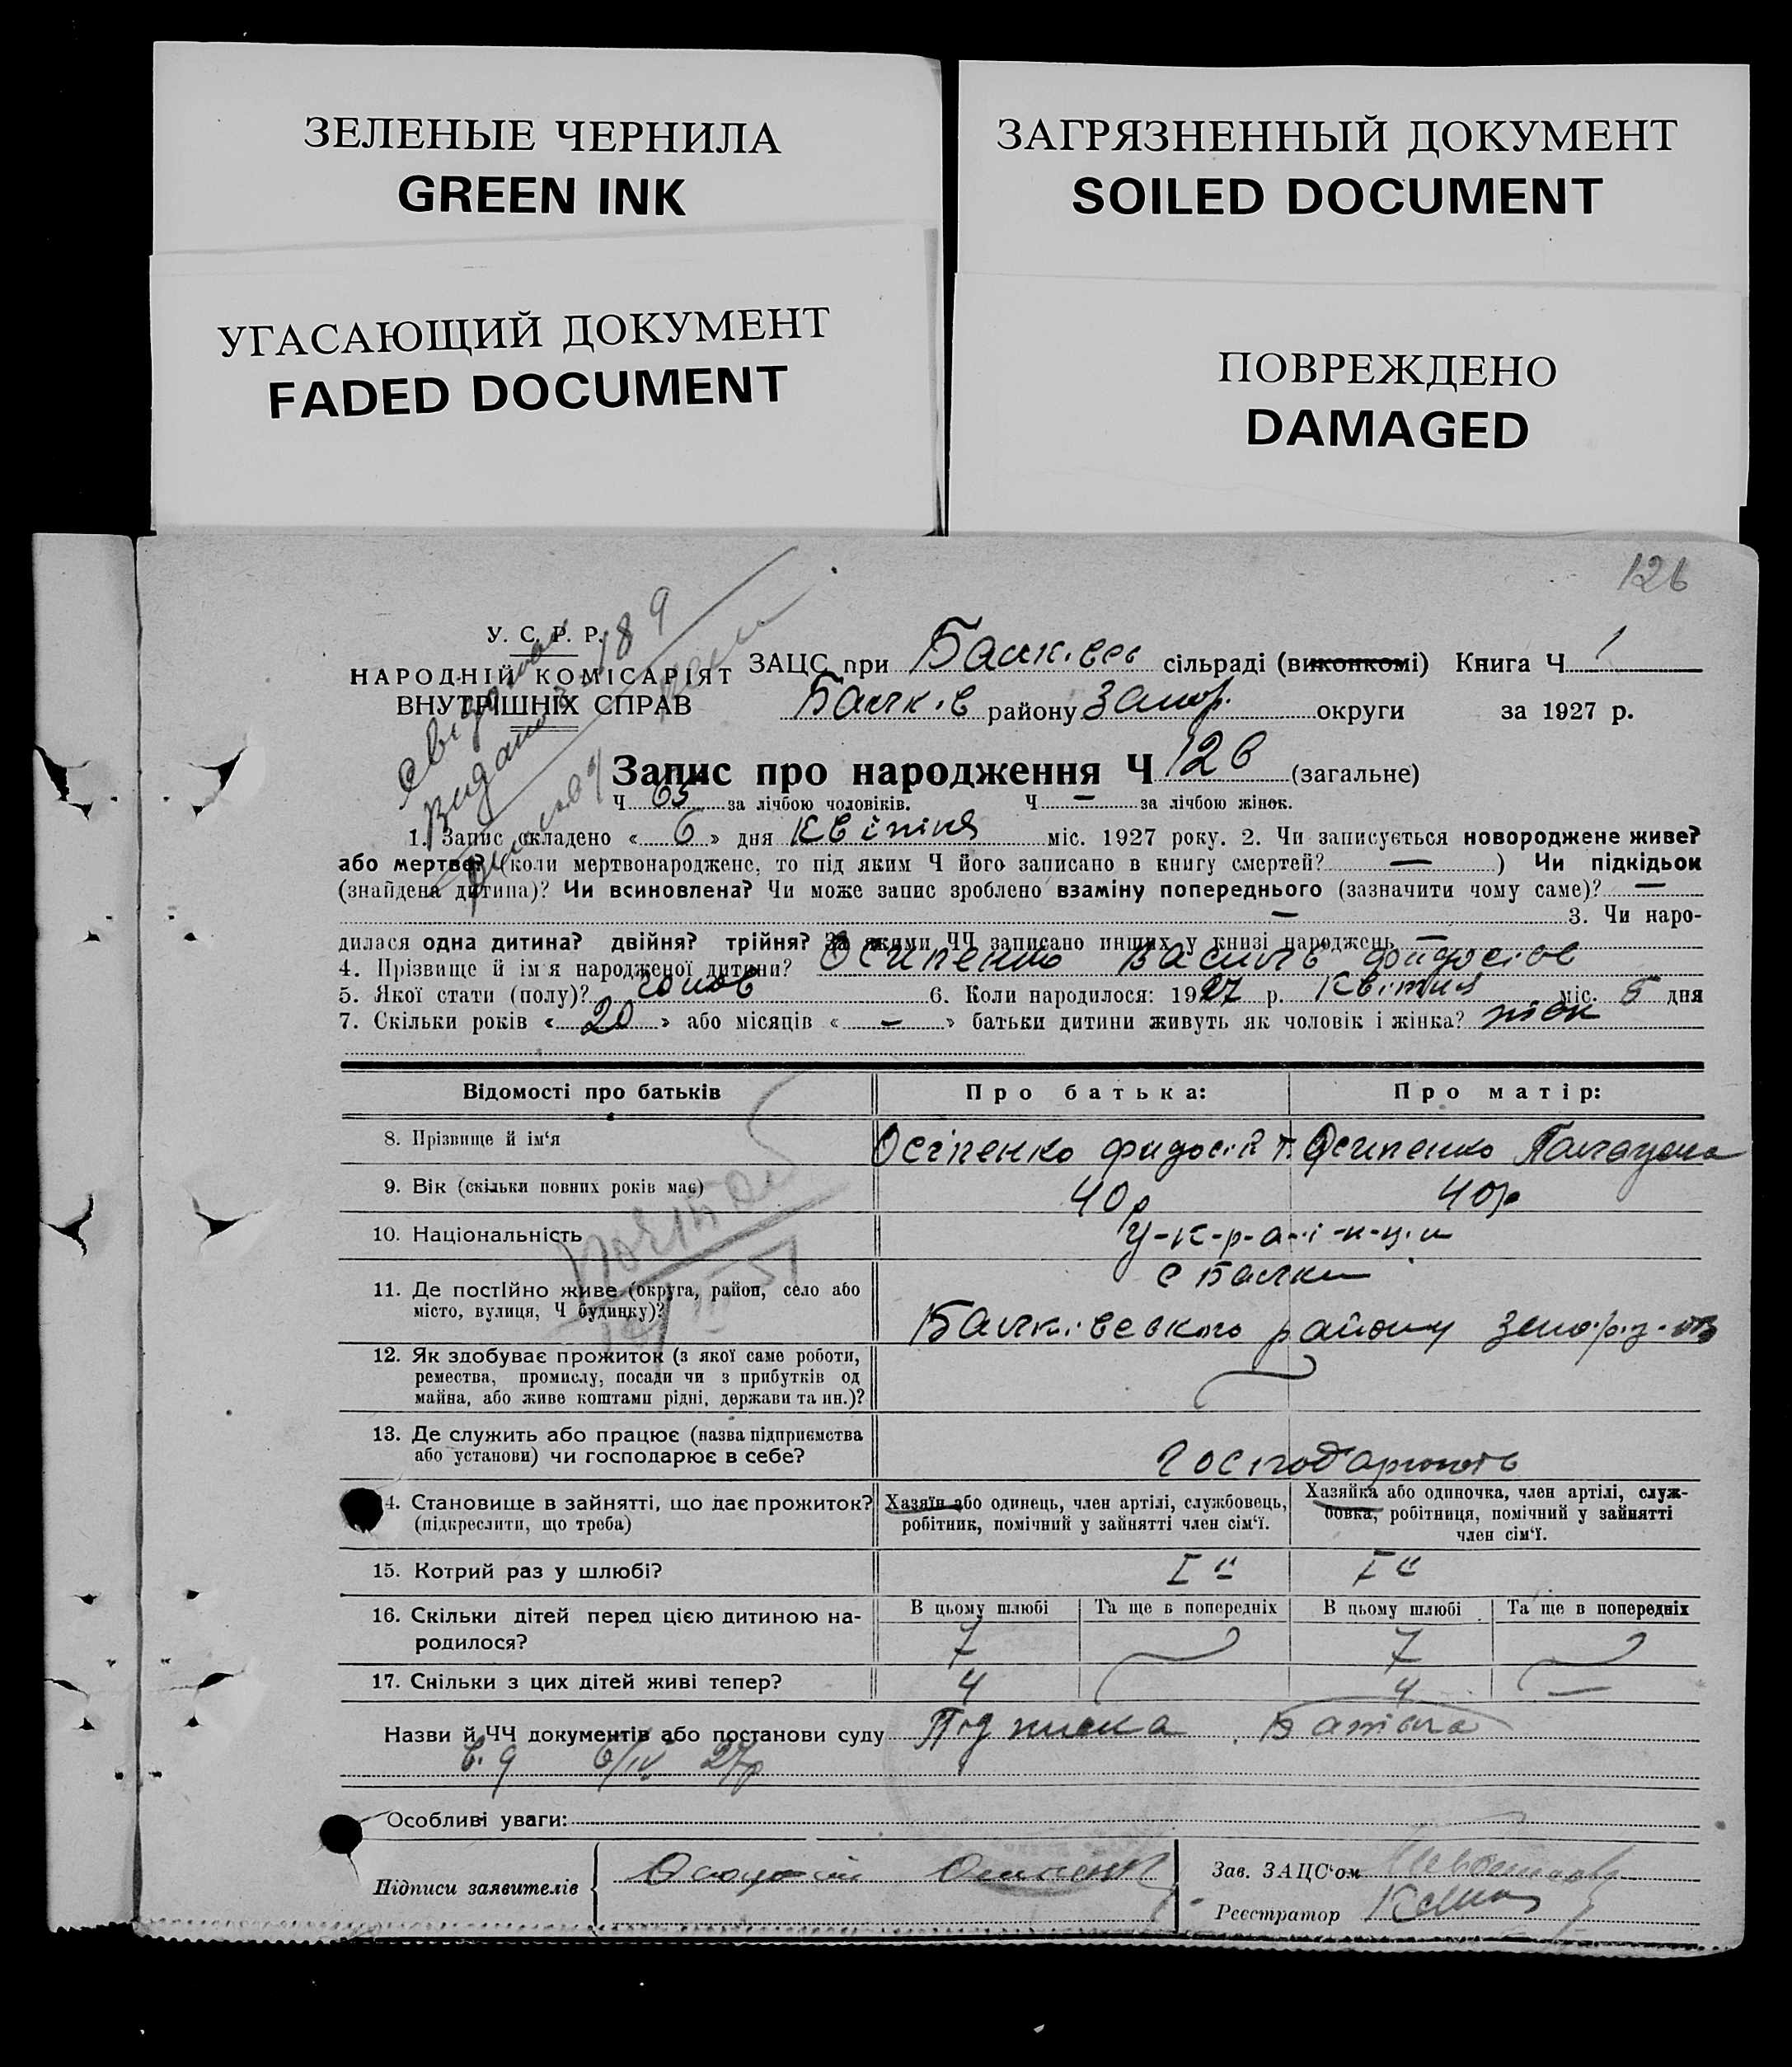 ЗЕЛЕНЫЕ ЧЕРНИЛА
GREEN INK
ЗАГРЯЗНЕННЫЙ ДОКУМЕНТ
SOILED DOCUMENT
УГАСАЮЩИЙ ДОКУМЕНТ
FADED DOCUMENT
ПОВРЕЖДЕНО
DAMAGED
126
У. С. Р. Р.
НАРОДНІЙ КОМІСАРІЯТ
ВНУТРІШНІХ СПРАВ
ЗАЦС при сільраді (виконкомі) Книга Ч 1
Балк.в району Запор. округи за 1927 р.
Запис про народження Ч 126 (загальне)
Ч 63 за лічбою чоловіків. Ч — за лічбою жінок.
1. Запис складено « 6 » дня Квітня міс. 1927 року. 2. Чи записується новороджене живе?
або мертве? (коли мертвонароджене, то під яким Ч його записано в книгу смертей? — ) Чи підкідьок
(знайдена дитина)? Чи всиновлена? Чи може запис зроблено взаміну попереднього (зазначити чому саме)? —
— 3. Чи наро-
дилася одна дитина? двійня? трійня? За якими ЧЧ записано инших у книзі народжень —
4. Прізвище й ім'я народженої дитини? Осипенко Василь Фидосіов
5. Якої стати (полу)? чолов 6. Коли народилося: 1927 р. Квітня міс. 5 дня
7. Скільки років « 20 » або місяців « — » батьки дитини живуть як чоловік і жінка?
Відомості про батьків
Про батька:
Про матір:
8. Прізвище й ім'я Осіпенко Фидосій Т. Осипенко
9. Вік (скільки повних років має) 40р 40р
10. Національність У-к-р-а-ї-н-ц-и
11. Де постійно живе (округа, район, село або
місто, вулиця, Ч будинку)?
с Балки
Балківського району
12. Як здобуває прожиток (з якої саме роботи,
ремества, промислу, посади чи з прибутків од
майна, або живе коштами рідні, держави та ин.)?
13. Де служить або працює (назва підприємства
або установи) чи господарює в себе?
Господарюють
14. Становище в зайнятті, що дає прожиток?
(підкреслити, що треба)
Хазяїн або одинець, член артілі, службовець,
робітник, помічний у зайнятті член сім'ї.
Хазяйка або одиночка, член артілі, служ-
бовка, робітниця, помічний у зайнятті
член сім'ї.
15. Котрий раз у шлюбі? I й I й
16. Скільки дітей перед цією дитиною на-
родилося?
В цьому шлюбі Та ще в попередніх В цьому шлюбі Та ще в попередніх
7 7
17. Скільки з цих дітей живі тепер? 4 4 —
Назви й ЧЧ документів або постанови суду Підписка Батька
6/IV 27р
Особливі уваги:
Підписи заявителів
Зав. ЗАЦС'ом
Реєстратор